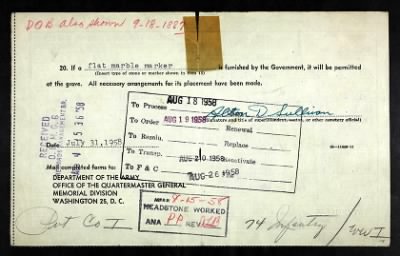 DOB also shown 9-18-1887
20. If a flat marble marker is furnished by the Government, it will be permitted
(Insert type of stone or marker shown in Item 13)
at the grave. All necessary arrangements for its placement have been made.
AUG 18 1958
To Process
Alton D Sullivan
(Signature and title of superintendent, sexton, or other cemetery official)
To Order AUG 19 1958 Renewal
To Remin. Replace
To Transp. AUG 20 1958 Deactivate
To F & C AUG 26 1958
RECEIVED
AUG 4 5 36 '58
Date July 31, 1958
Mail completed forms to:
DEPARTMENT OF THE ARMY
OFFICE OF THE QUARTERMASTER GENERAL
MEMORIAL DIVISION
WASHINGTON 25, D. C.
8-15-58
HEADSTONE WORKED
ANA PP REV
Pvt Co I 74 Infantry / WW I